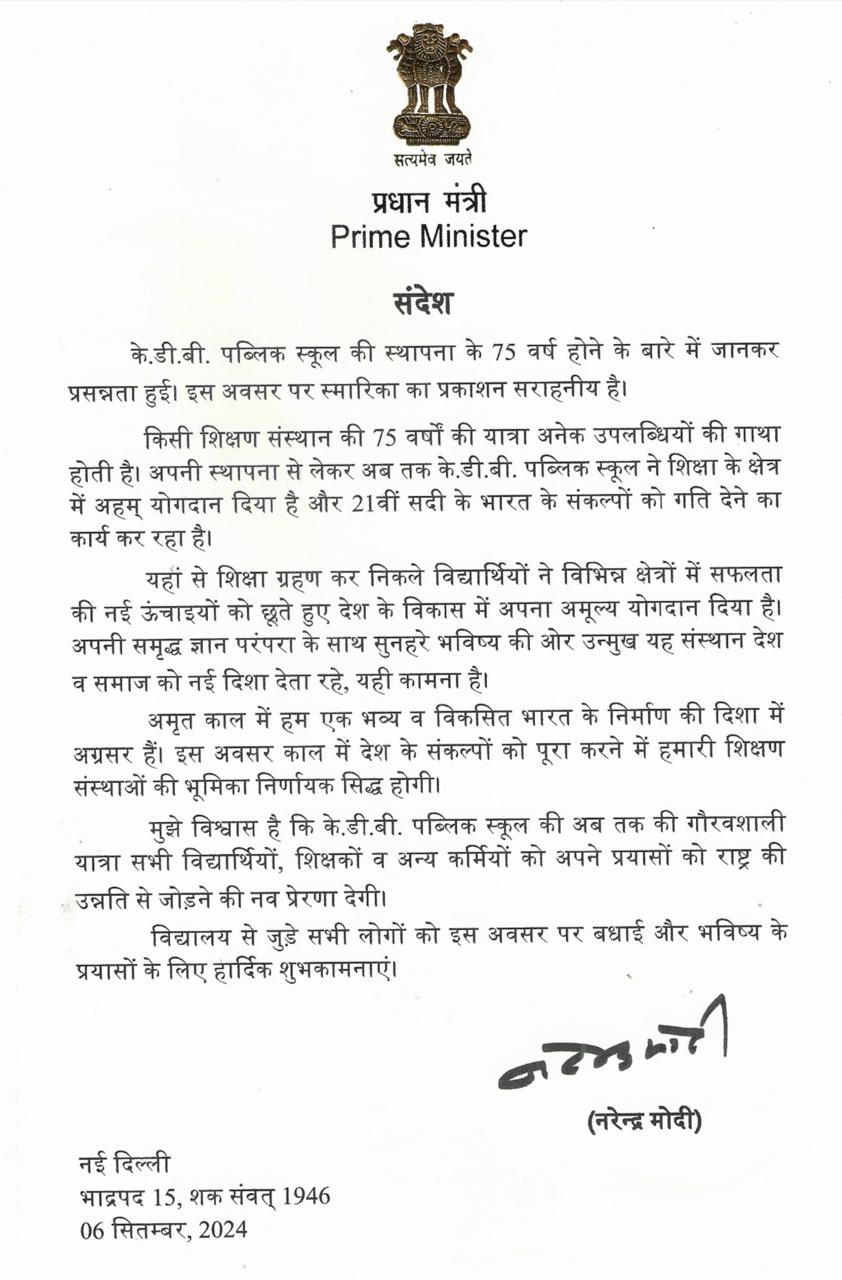 सत्यमेव जयते
प्रधान मंत्री
Prime Minister
संदेश
के.डी.बी. पब्लिक स्कूल की स्थापना के 75 वर्ष होने के बारे में जानकर
प्रसन्नता हुई। इस अवसर पर स्मारिका का प्रकाशन सराहनीय है।
किसी शिक्षण संस्थान की 75 वर्षों की यात्रा अनेक उपलब्धियों की गाथा
होती है। अपनी स्थापना से लेकर अब तक के.डी.बी. पब्लिक स्कूल ने शिक्षा के क्षेत्र
में अहम् योगदान दिया है और 21वीं सदी के भारत के संकल्पों को गति देने का
कार्य कर रहा है।
यहां से शिक्षा ग्रहण कर निकले विद्यार्थियों ने विभिन्न क्षेत्रों में सफलता
की नई ऊंचाइयों को छूते हुए देश के विकास में अपना अमूल्य योगदान दिया है।
अपनी समृद्ध ज्ञान परंपरा के साथ सुनहरे भविष्य की ओर उन्मुख यह संस्थान देश
व समाज को नई दिशा देता रहे, यही कामना है।
अमृत काल में हम एक भव्य व विकसित भारत के निर्माण की दिशा में
अग्रसर हैं। इस अवसर काल में देश के संकल्पों को पूरा करने में हमारी शिक्षण
संस्थाओं की भूमिका निर्णायक सिद्ध होगी।
मुझे विश्वास है कि के.डी.बी. पब्लिक स्कूल की अब तक की गौरवशाली
यात्रा सभी विद्यार्थियों, शिक्षकों व अन्य कर्मियों को अपने प्रयासों को राष्ट्र की
उन्नति से जोड़ने की नव प्रेरणा देगी।
विद्यालय से जुड़े सभी लोगों को इस अवसर पर बधाई और भविष्य के
प्रयासों के लिए हार्दिक शुभकामनाएं।
नरेन्द्र मोदी
(नरेन्द्र मोदी)
नई दिल्ली
भाद्रपद 15, शक संवत् 1946
06 सितम्बर, 2024